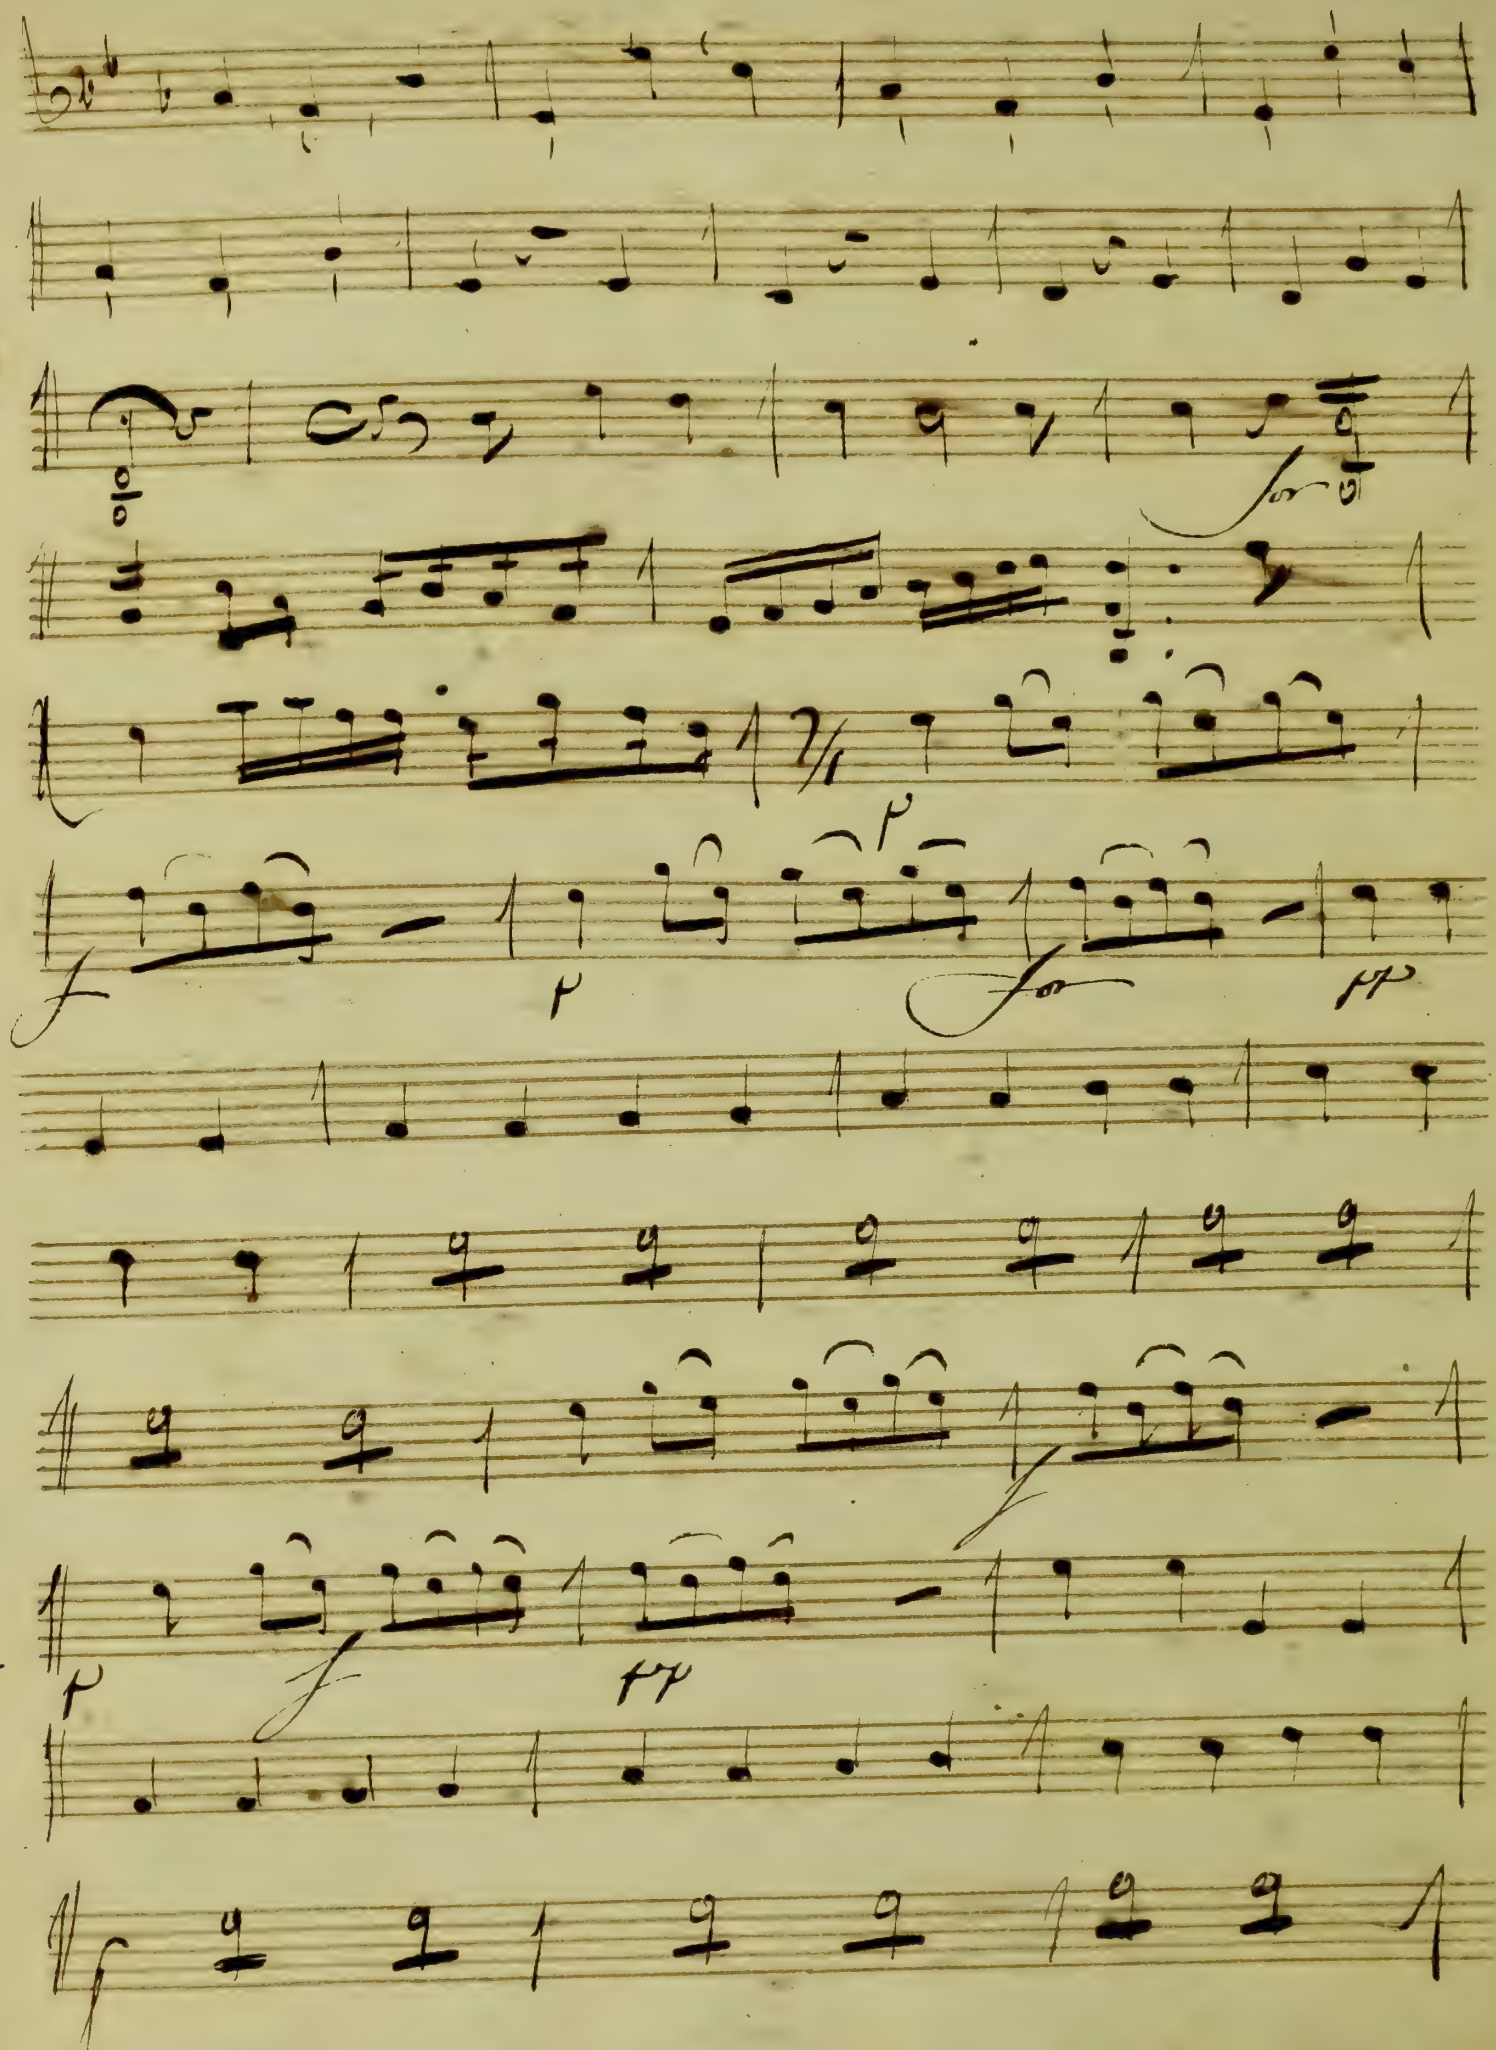 for
p
f p for pp
f
p f pp
f